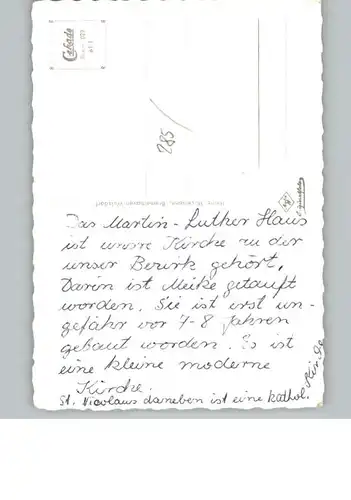 Cekade
285
Das Martin-Luther Haus
ist unsre Kirche zu der
unser Bezirk gehört.
Darin ist Meike getauft
worden. Sie ist erst un-
gefähr vor 7-8 Jahren
gebaut worden. Es ist
eine kleine moderne
Kirche.
St. Nicolaus daneben ist eine kathol. Kirche